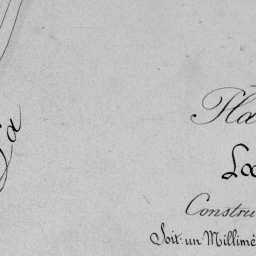 Pla
La
Constru
Soit un Millimè